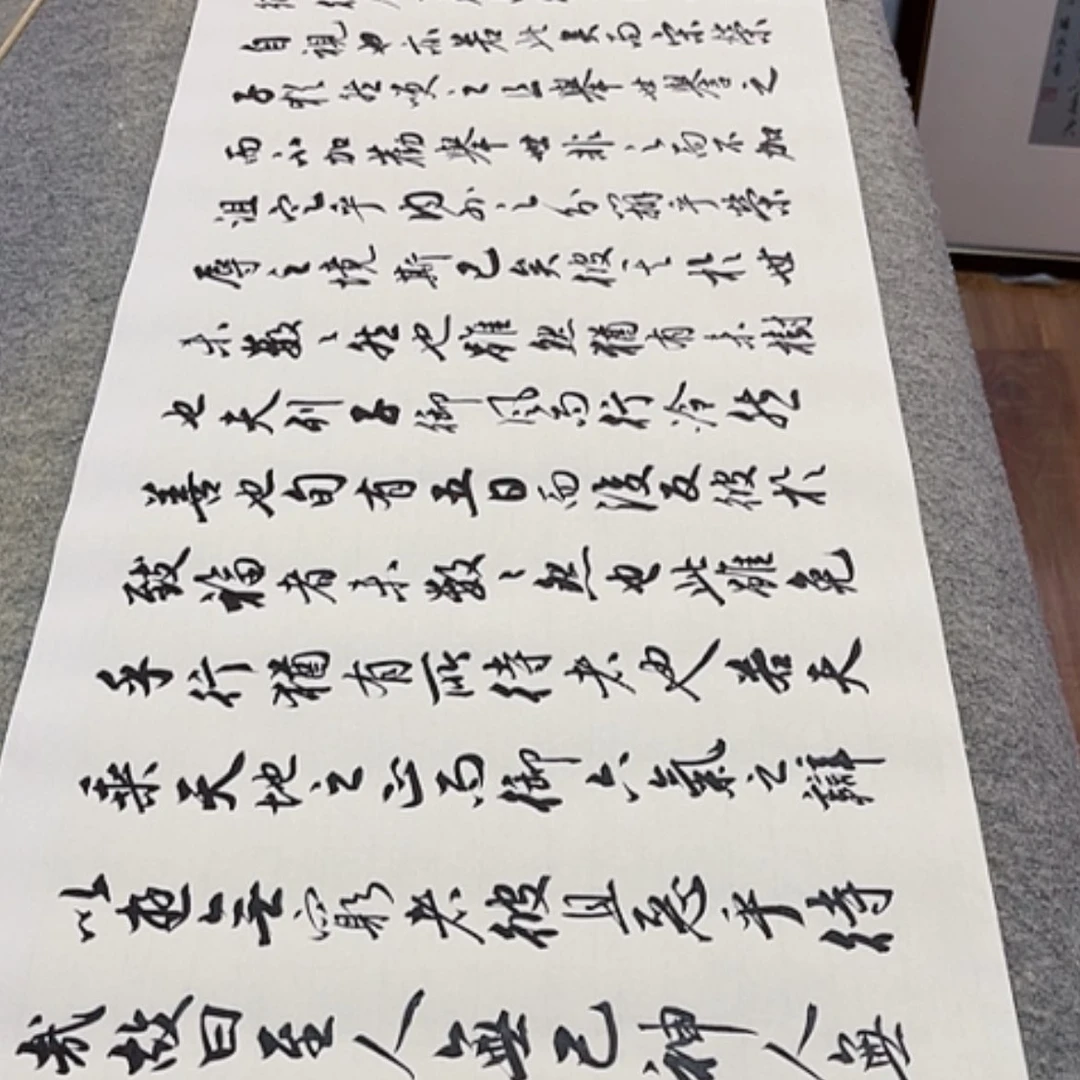 自視也亦若此矣而宋榮
子猶然笑之且舉世譽之
而不加勸舉世非之而不加
沮定乎內外之分辯乎榮
辱之境斯已矣彼其於世
未數々然也雖然猶有未樹
也夫列子御風而行泠然
善也旬有五日而後反彼於
致福者未數々然也此雖免
乎行猶有所待者也若夫
乘天地之正而御六氣之辯
以遊無窮者彼且惡乎待
哉故曰至人無己神人無